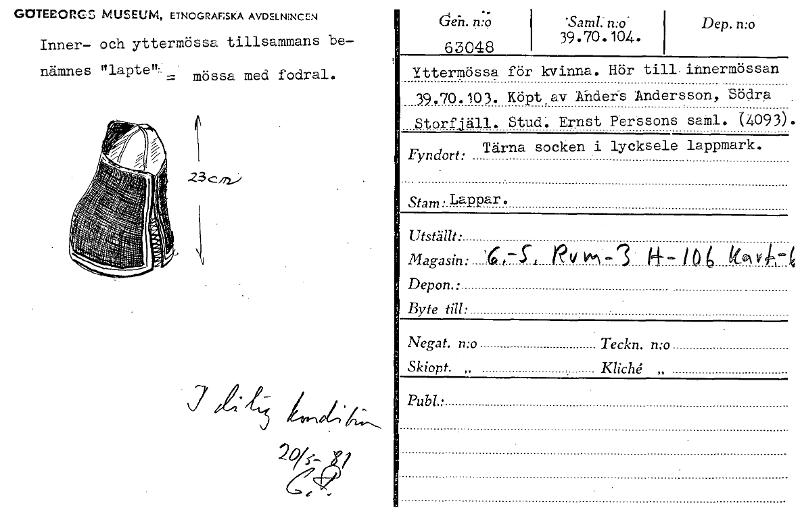 GÖTEBORGS MUSEUM, ETNOGRAFISKA AVDELNINGEN
Inner- och yttermössa tillsammans be-
nämnes "lapte" = mössa med fodral.
23cm
I dålig kondition
20/5- 81
G.P.
Gen. n:o
63048
Saml. n:o
39.70.104.
Dep. n:o
Yttermössa för kvinna. Hör till innermössan
39.70.103. Köpt av Anders Andersson, Södra
Storfjäll. Stud. Ernst Perssons saml. (4093).
Fyndort: Tärna socken i lycksele lappmark.
Stam: Lappar.
Utställt:
Magasin: G.-S. Rum-3 H-106 Kart-6
Depon.:
Byte till:
Negat. n:o Teckn. n:o
Skiopt. „ Kliché „
Publ.: